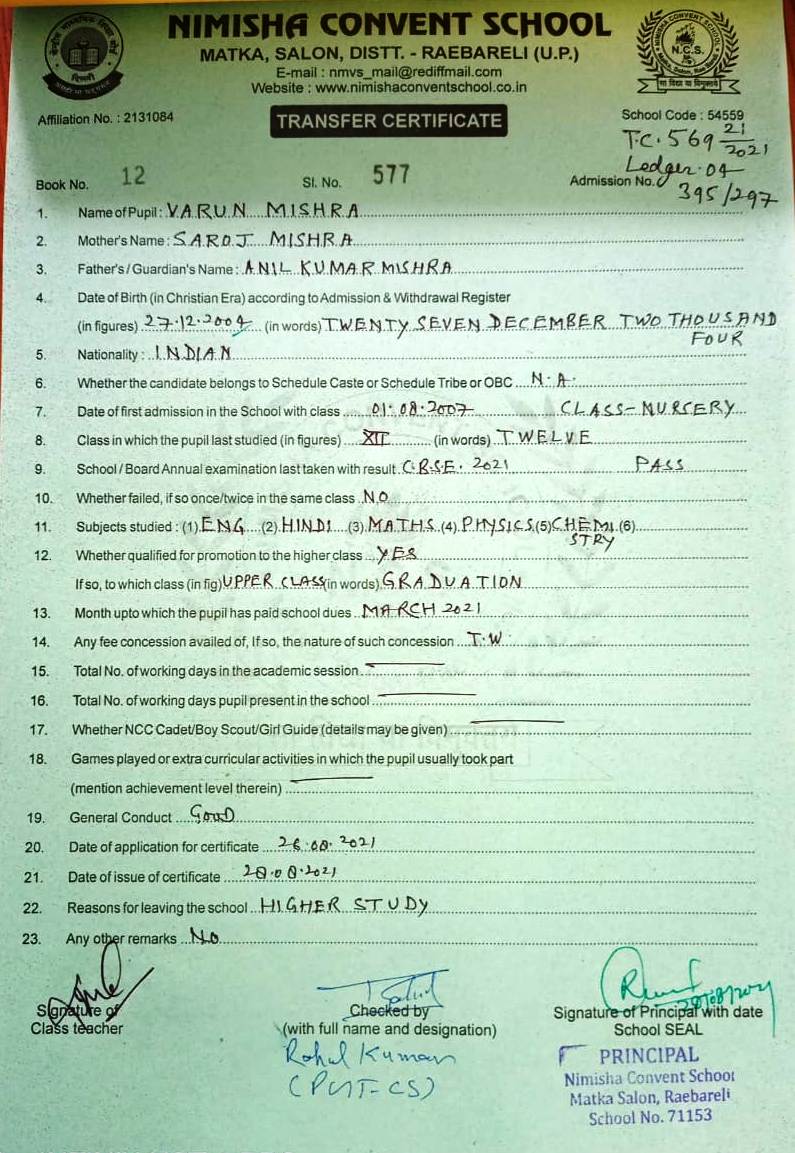 NIMISHA CONVENT SCHOOL
MATKA, SALON, DISTT. - RAEBARELI (U.P.)
E-mail : nmvs_mail@rediffmail.com
Website : www.nimishaconventschool.co.in
Affiliation No. : 2131084
TRANSFER CERTIFICATE
School Code : 54559
T.C. 569 21/2021
Ledger. 04
Book No. 12 Sl. No. 577 Admission No. 395/297
1. Name of Pupil : VARUN MISHRA
2. Mother's Name : SAROJ MISHRA
3. Father's / Guardian's Name : ANIL KUMAR MISHRA
4. Date of Birth (in Christian Era) according to Admission & Withdrawal Register
(in figures) 27.12.2004 (in words) TWENTY SEVEN DECEMBER TWO THOUSAND
FOUR
5. Nationality : INDIAN
6. Whether the candidate belongs to Schedule Caste or Schedule Tribe or OBC N.A.
7. Date of first admission in the School with class 01.08.2007 CLASS-NURSERY
8. Class in which the pupil last studied (in figures) XII (in words) TWELVE
9. School / Board Annual examination last taken with result C.B.S.E. 2021 PASS
10. Whether failed, if so once/twice in the same class NO
11. Subjects studied : (1) ENG (2) HINDI (3) MATHS (4) PHYSICS (5) CHEMI (6)
STRY
12. Whether qualified for promotion to the higher class YES
If so, to which class (in fig) UPPER CLASS (in words) GRADUATION
13. Month upto which the pupil has paid school dues MARCH 2021
14. Any fee concession availed of, If so, the nature of such concession T.W
15. Total No. of working days in the academic session
16. Total No. of working days pupil present in the school
17. Whether NCC Cadet/Boy Scout/Girl Guide (details may be given)
18. Games played or extra curricular activities in which the pupil usually took part
(mention achievement level therein)
19. General Conduct GOOD
20. Date of application for certificate 26.08.2021
21. Date of issue of certificate 28.08.2021
22. Reasons for leaving the school HIGHER STUDY
23. Any other remarks NO
28/08/2021
Signature of Checked by Signature of Principal with date
Class teacher (with full name and designation) School SEAL
Rahul Kumar
(PGT-CS)
PRINCIPAL
Nimisha Convent School
Matka Salon, Raebareli
School No. 71153